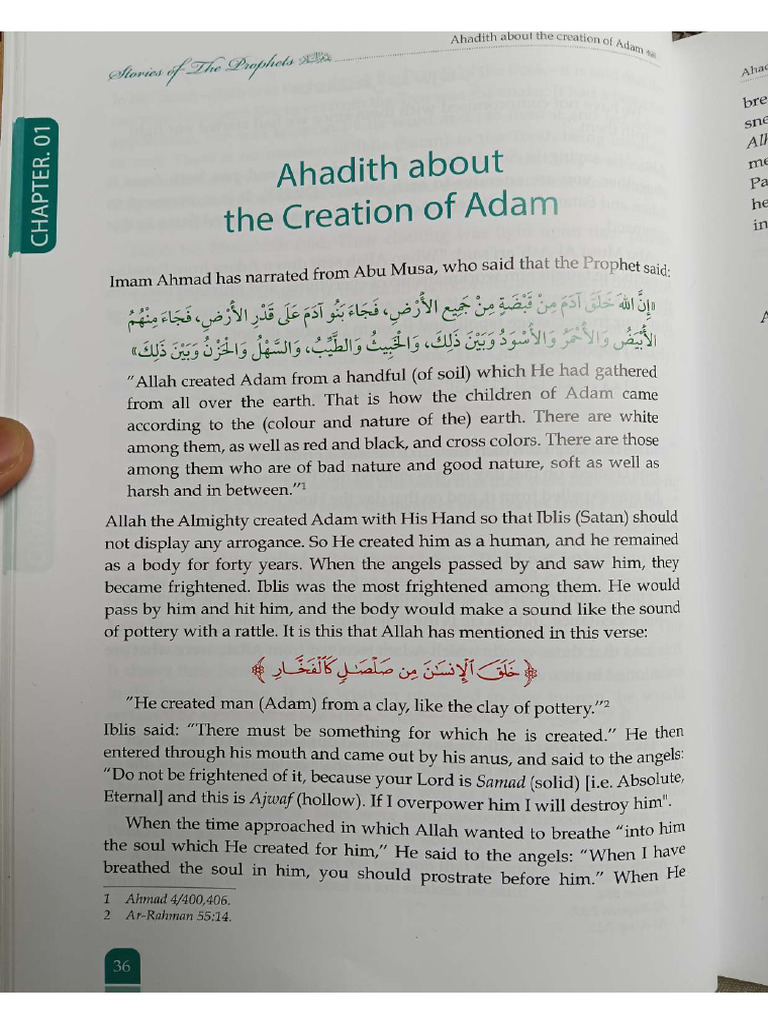 Stories of The Prophets
Ahadith about the creation of Adam
CHAPTER. 01
Ahadith about
the Creation of Adam
Imam Ahmad has narrated from Abu Musa, who said that the Prophet said:
«إِنَّ اللهَ خَلَقَ آدَمَ مِنْ قَبْضَةٍ مِنْ جَمِيعِ الأَرْضِ، فَجَاءَ بَنُو آدَمَ عَلَى قَدْرِ الأَرْضِ، فَجَاءَ مِنْهُمُ
الأَبْيَضُ وَالأَحْمَرُ وَالأَسْوَدُ وَبَيْنَ ذَلِكَ، وَالْخَبِيثُ وَالطَّيِّبُ، وَالسَّهْلُ وَالْحَزْنُ وَبَيْنَ ذَلِكَ»
"Allah created Adam from a handful (of soil) which He had gathered
from all over the earth. That is how the children of Adam came
according to the (colour and nature of the) earth. There are white
among them, as well as red and black, and cross colors. There are those
among them who are of bad nature and good nature, soft as well as
harsh and in between."1
Allah the Almighty created Adam with His Hand so that Iblis (Satan) should
not display any arrogance. So He created him as a human, and he remained
as a body for forty years. When the angels passed by and saw him, they
became frightened. Iblis was the most frightened among them. He would
pass by him and hit him, and the body would make a sound like the sound
of pottery with a rattle. It is this that Allah has mentioned in this verse:
﴿خَلَقَ ٱلْإِنسَٰنَ مِن صَلْصَٰلٍ كَٱلْفَخَّارِ﴾
"He created man (Adam) from a clay, like the clay of pottery."2
Iblis said: "There must be something for which he is created." He then
entered through his mouth and came out by his anus, and said to the angels:
"Do not be frightened of it, because your Lord is Samad (solid) [i.e. Absolute,
Eternal] and this is Ajwaf (hollow). If I overpower him I will destroy him".
When the time approached in which Allah wanted to breathe "into him
the soul which He created for him," He said to the angels: "When I have
breathed the soul in him, you should prostrate before him." When He
1 Ahmad 4/400,406.
2 Ar-Rahman 55:14.
36